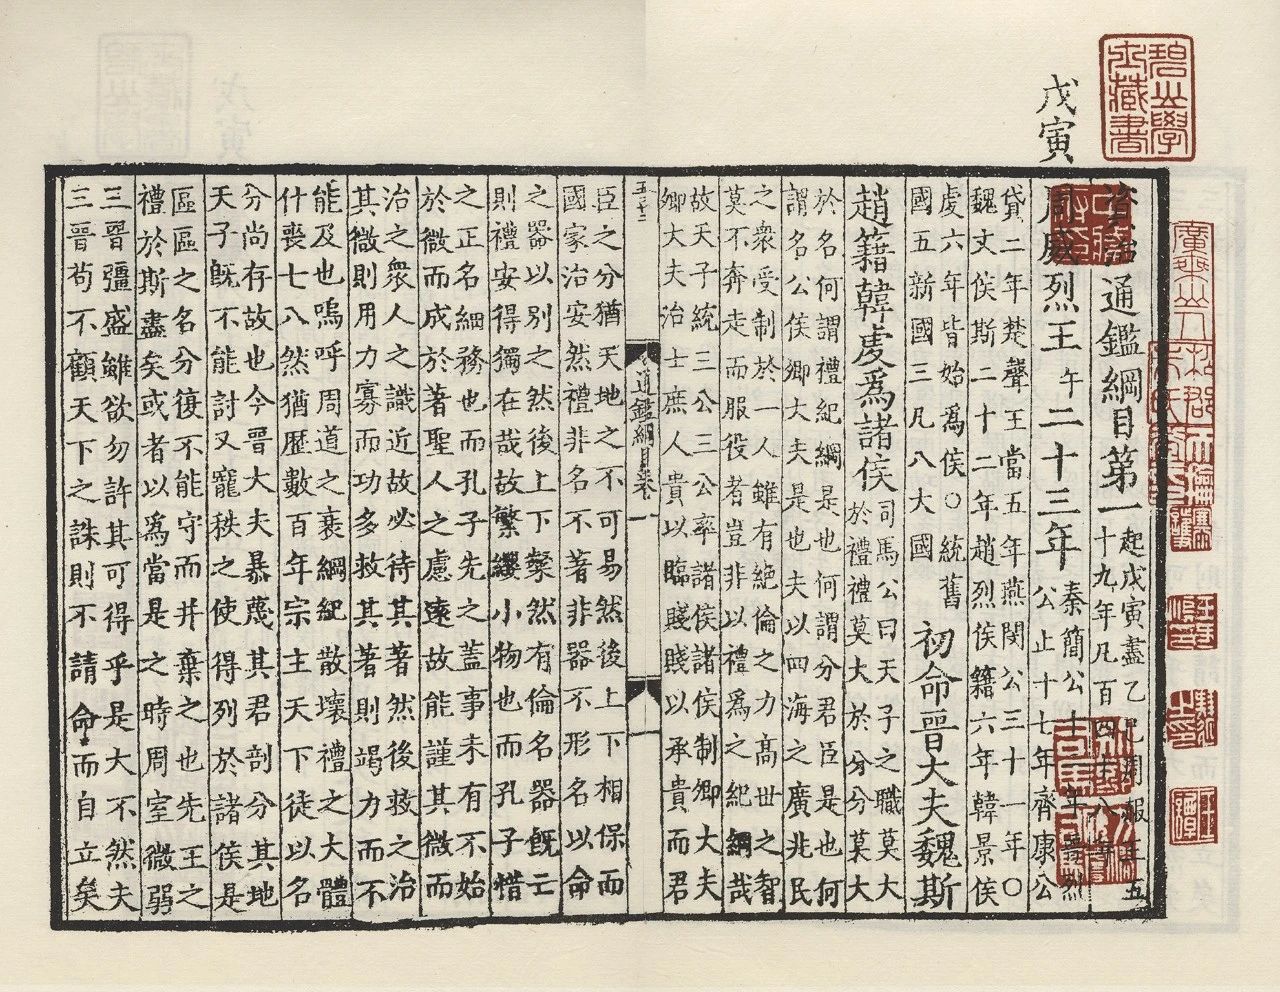 碧山學士藏書
戊寅
資治通鑑綱目第一
起戊寅盡乙巳周赧王五
十九年凡百四十八年
周威烈王午二十三年
秦簡公十二年晉烈
公止十七年齊康公
貸二年楚聲王當五年燕閔公三十一年〇
魏文侯斯二十二年趙烈侯籍六年韓景侯
虔六年皆始爲侯〇統舊
國五新國三凡八大國
初命晉大夫魏斯
趙籍韓虔爲諸侯
司馬公曰天子之職莫大
於禮禮莫大於分分莫大
於名何謂禮紀綱是也何謂分君臣是也何
謂名公侯卿大夫是也夫以四海之廣兆民
之衆受制於一人雖有絶倫之力高世之智
莫不奔走而服役者豈非以禮爲之紀綱哉
故天子統三公三公率諸侯諸侯制卿大夫
卿大夫治士庶人貴以臨賤賤以承貴而君
通鑑綱目卷一
臣之分猶天地之不可易然後上下相保而
國家治安然禮非名不著非器不形名以命
之器以別之然後上下粲然有倫名器旣亡
則禮安得獨在哉故繁纓小物也而孔子惜
之正名細務也而孔子先之蓋事未有不始
於微而成於著聖人之慮遠故能謹其微而
治之衆人之識近故必待其著然後救之治
其微則用力寡而功多救其著則竭力而不
能及也嗚呼周道之衰綱紀散壞禮之大體
什喪七八然猶歷數百年宗主天下徒以名
分尚存故也今晉大夫暴蔑其君剖分其地
天子旣不能討又寵秩之使得列於諸侯是
區區之名分復不能守而并棄之也先王之
禮於斯盡矣或者以爲當是之時周室微弱
三晉彊盛雖欲勿許其可得乎是大不然夫
三晉苟不顧天下之誅則不請命而自立矣